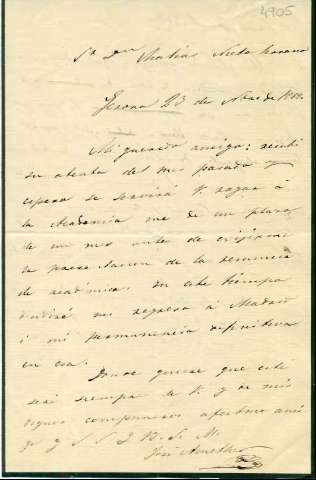 4905
Sr. Dn. Matias Nieto Serrano
Gerona 23 de de 18
Mi querido amigo: recibí
su atenta del mes pasado y
espero se servirá V. rogar á
la Academia me dé un plazo
de un mes antes de exigirme
la presentacion de la renuncia
de académico. En este tiempo
mi regreso á Madrid
ó mi permanencia definitiva
en esa.
Donde quiera que esté
será siempre de V. y de mis
dignos compañeros afectmo ami
go y S. S. Q. B. S. M.
José